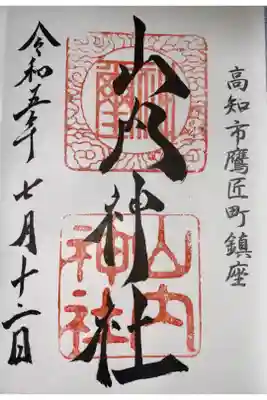 高知市鷹匠町鎮座
山内神社
山内
神社
令和五年七月十二日